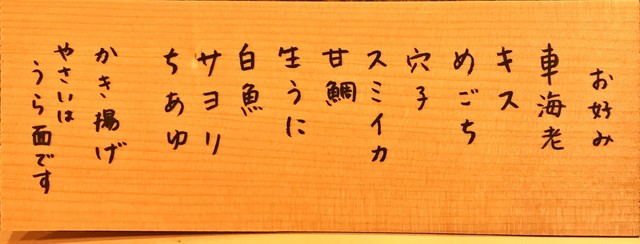 お好み
車海老
キス
めごち
穴子
スミイカ
甘鯛
生うに
白魚
サヨリ
ちあゆ
かき揚げ
やさいは
うら面です